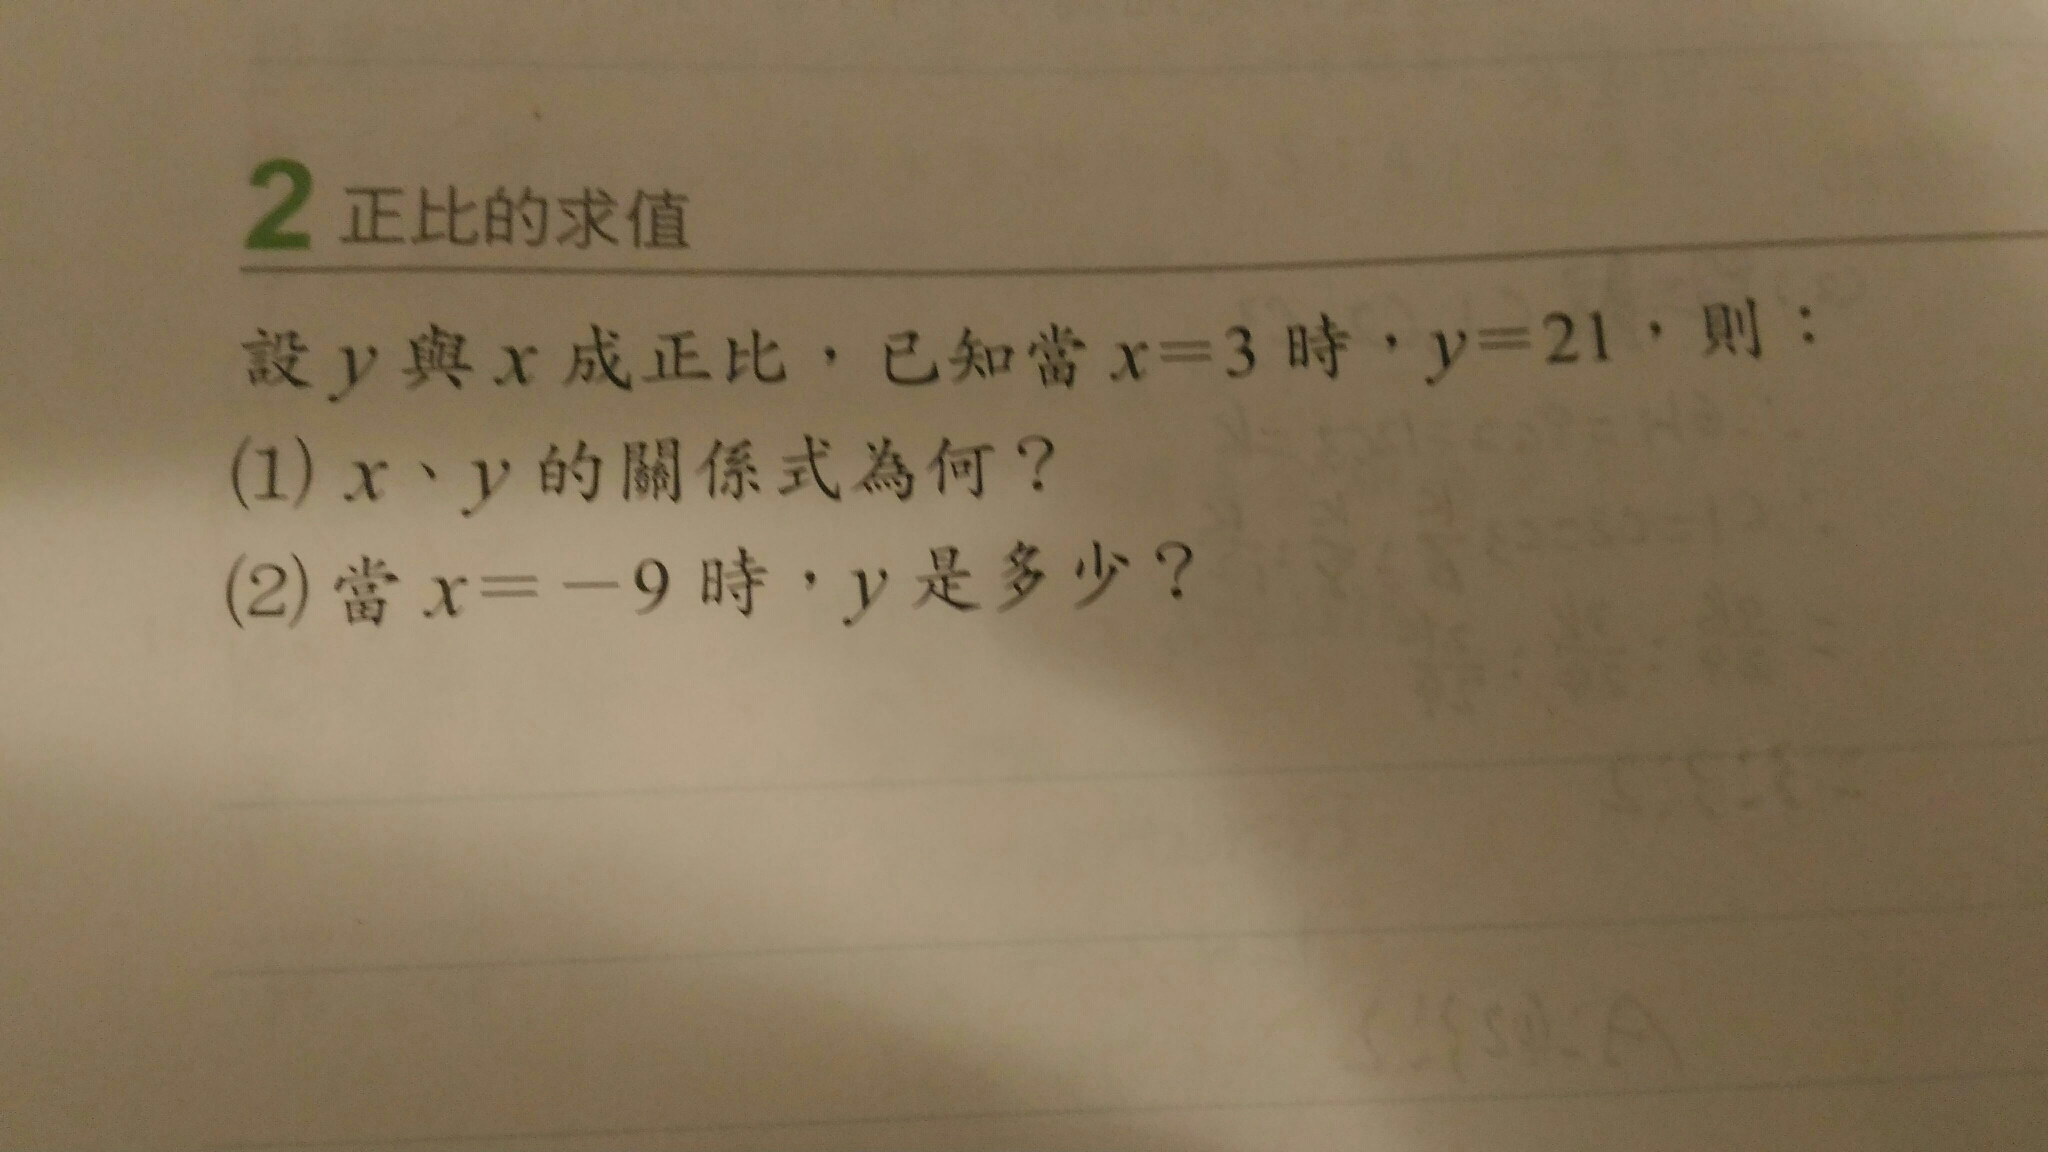 2 正比的求值
設 y 與 x 成正比，已知當 x=3 時，y=21，則：
(1) x、y 的關係式為何？
(2) 當 x=-9 時，y 是多少？